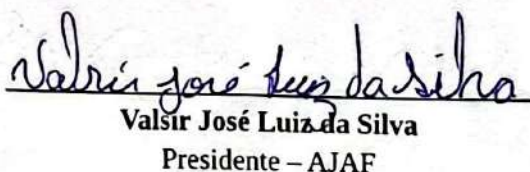 Valsir José Luiz da Silva
Valsir José Luiz da Silva
Presidente – AJAF